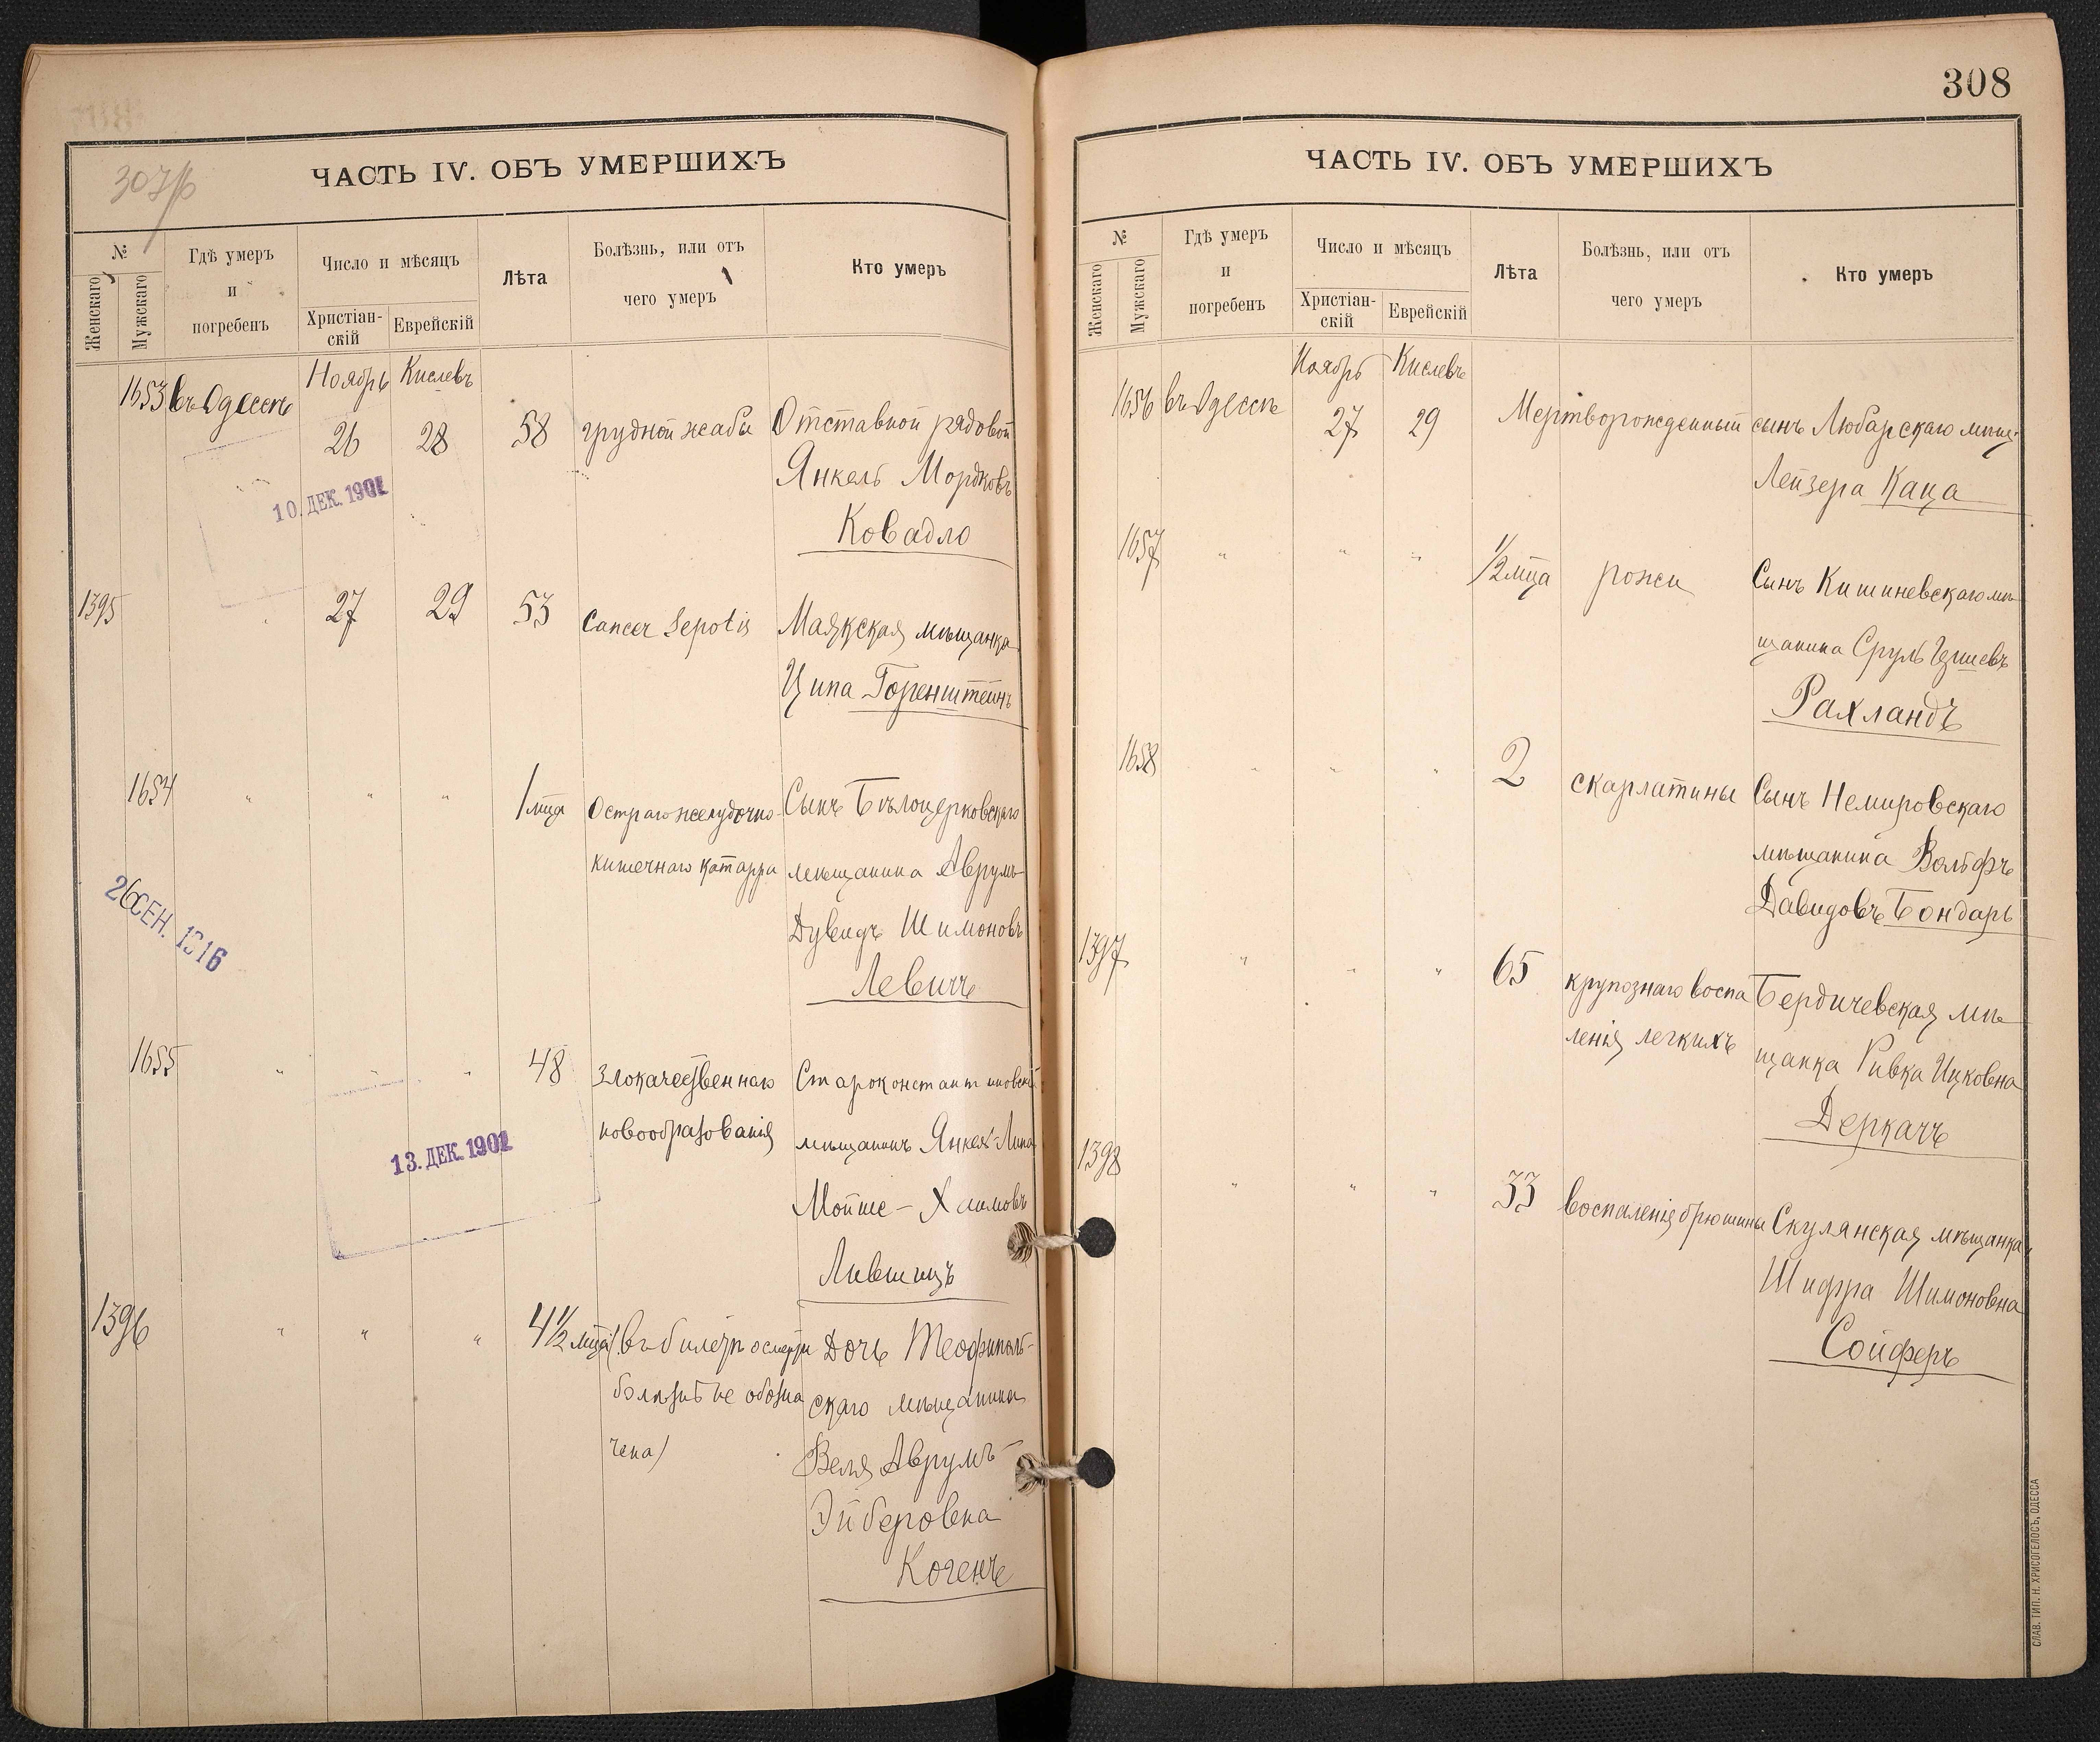 307/б
ЧАСТЬ IV. ОБЪ УМЕРШИХЪ
№
Женскаго
Мужскаго
Гдѣ умеръ
и
погребенъ
Число и мѣсяцъ
Христіан-
скій
Еврейскій
Лѣта
Болѣзнь, или отъ
чего умеръ
Кто умеръ
Ноябрь Кислевъ
1653 въ Одессѣ 26 28 58 грудной жабы Отставной рядовой
Янкель Мордковъ
Ковадло
10. ДЕК. 1901
1395 27 29 53 Cancer Маякская мѣщанка
Ципа Горенштейнъ
1654 " " " 1 мца Остраго желудочно- Сынъ Бѣлоцерковскаго
кишечнаго катарра мѣщанина Аврумъ
Дувидъ Шимоновъ
Левичъ
26 СЕН. 1916
1655 " " " 48 Злокачественнаго Староконстантиновскій
новообразованія мѣщанинъ Янкель-Липа
Мойше-Хаимовъ
Лившицъ
13. ДЕК. 1901
1396 " " " 4 1/2 мца (въ билетѣ о смерти Дочь Теофиполь-
болѣзнь не обозна скаго мѣщанина
чена) Веля Аврумъ-
Эйберовна
Когенъ
308
ЧАСТЬ IV. ОБЪ УМЕРШИХЪ
№
Женскаго
Мужскаго
Гдѣ умеръ
и
погребенъ
Число и мѣсяцъ
Христіан-
скій
Еврейскій
Лѣта
Болѣзнь, или отъ
чего умеръ
Кто умеръ
Ноябрь Кислевъ
1656 въ Одессѣ 27 29 Мертворожденный сынъ Любарскаго мѣщ.
Лейзера Каца
1657 " " " 1/2 мца рожи Сынъ Кишиневскаго мѣ
щанина Сруль
Рахландъ
1658 " " " 2 скарлатины Сынъ Немировскаго
мѣщанина Вольфъ
Давидовъ Бондарь
1397 " " " 65 крупознаго воспа Бердичевская мѣ
ленія легкихъ щанка Ривка Ицковна
Деркачъ
1398 " " " 33 воспаленія брюшины Скулянская мѣщанка
Шифра Шимоновна
Сойферъ
СЛАВ. ТИП. Н. ХРИСОГЕЛОСЪ, ОДЕССА